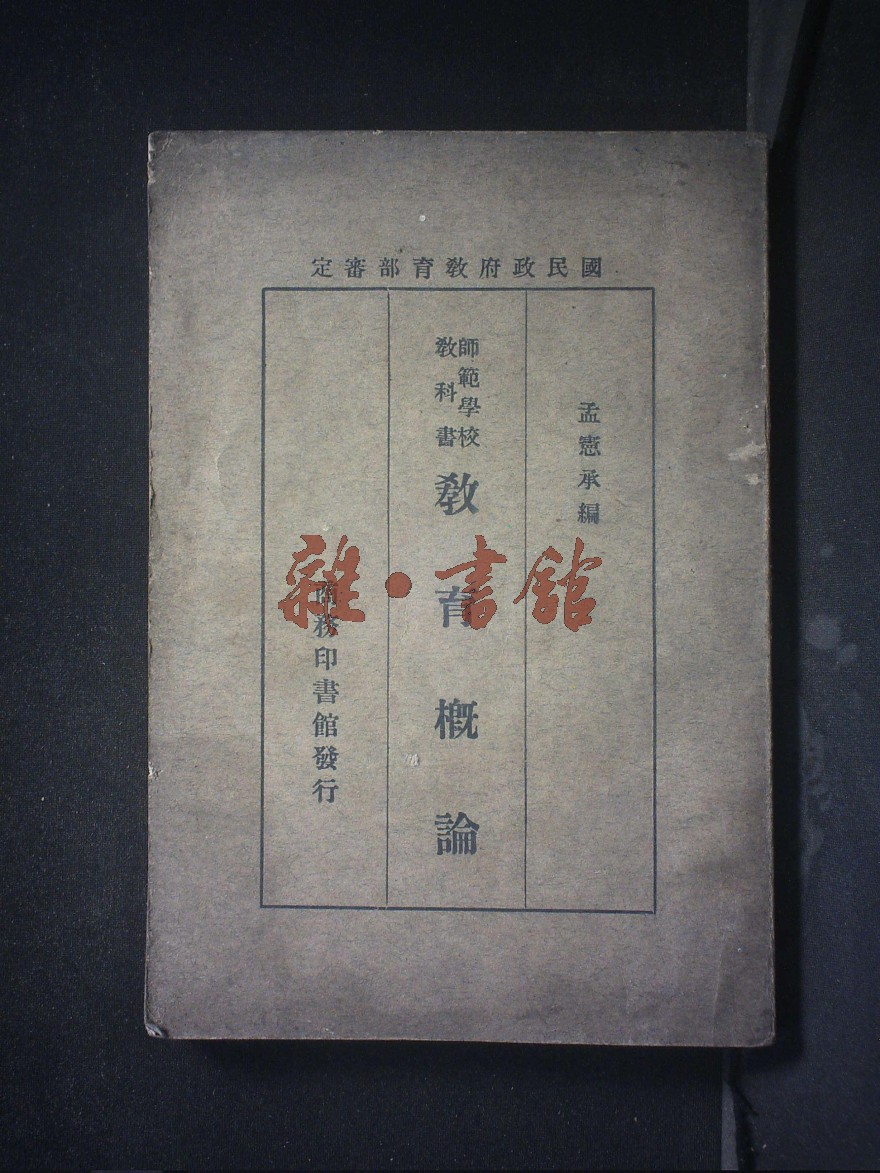 國民政府教育部審定
孟憲承編
師範學校
教科書
教育概論
商務印書館發行
雜·書館